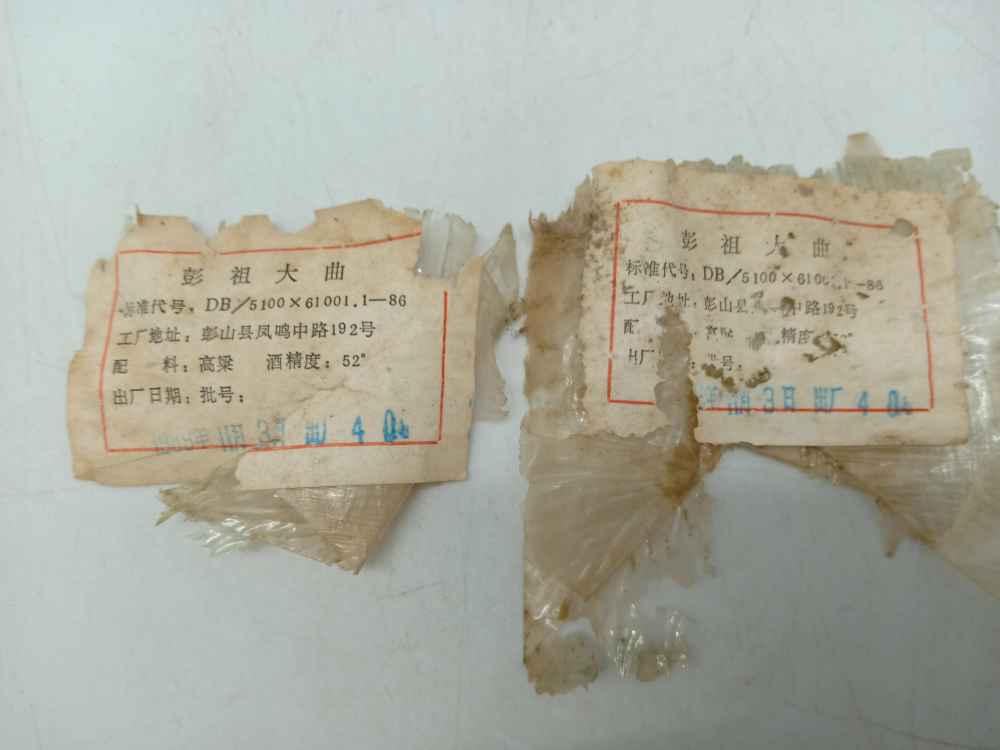 彭祖大曲
标准代号：DB/5100×61001.1—86
工厂地址：彭山县凤鸣中路192号
配 料：高粱 酒精度：52°
出厂日期：批号：
年11月3日 出厂 4
彭祖大曲
标准代号：DB/5100×6100 —86
工厂地址：彭山县 中路192号
配 精度
出厂 号：
月3日 出厂 4